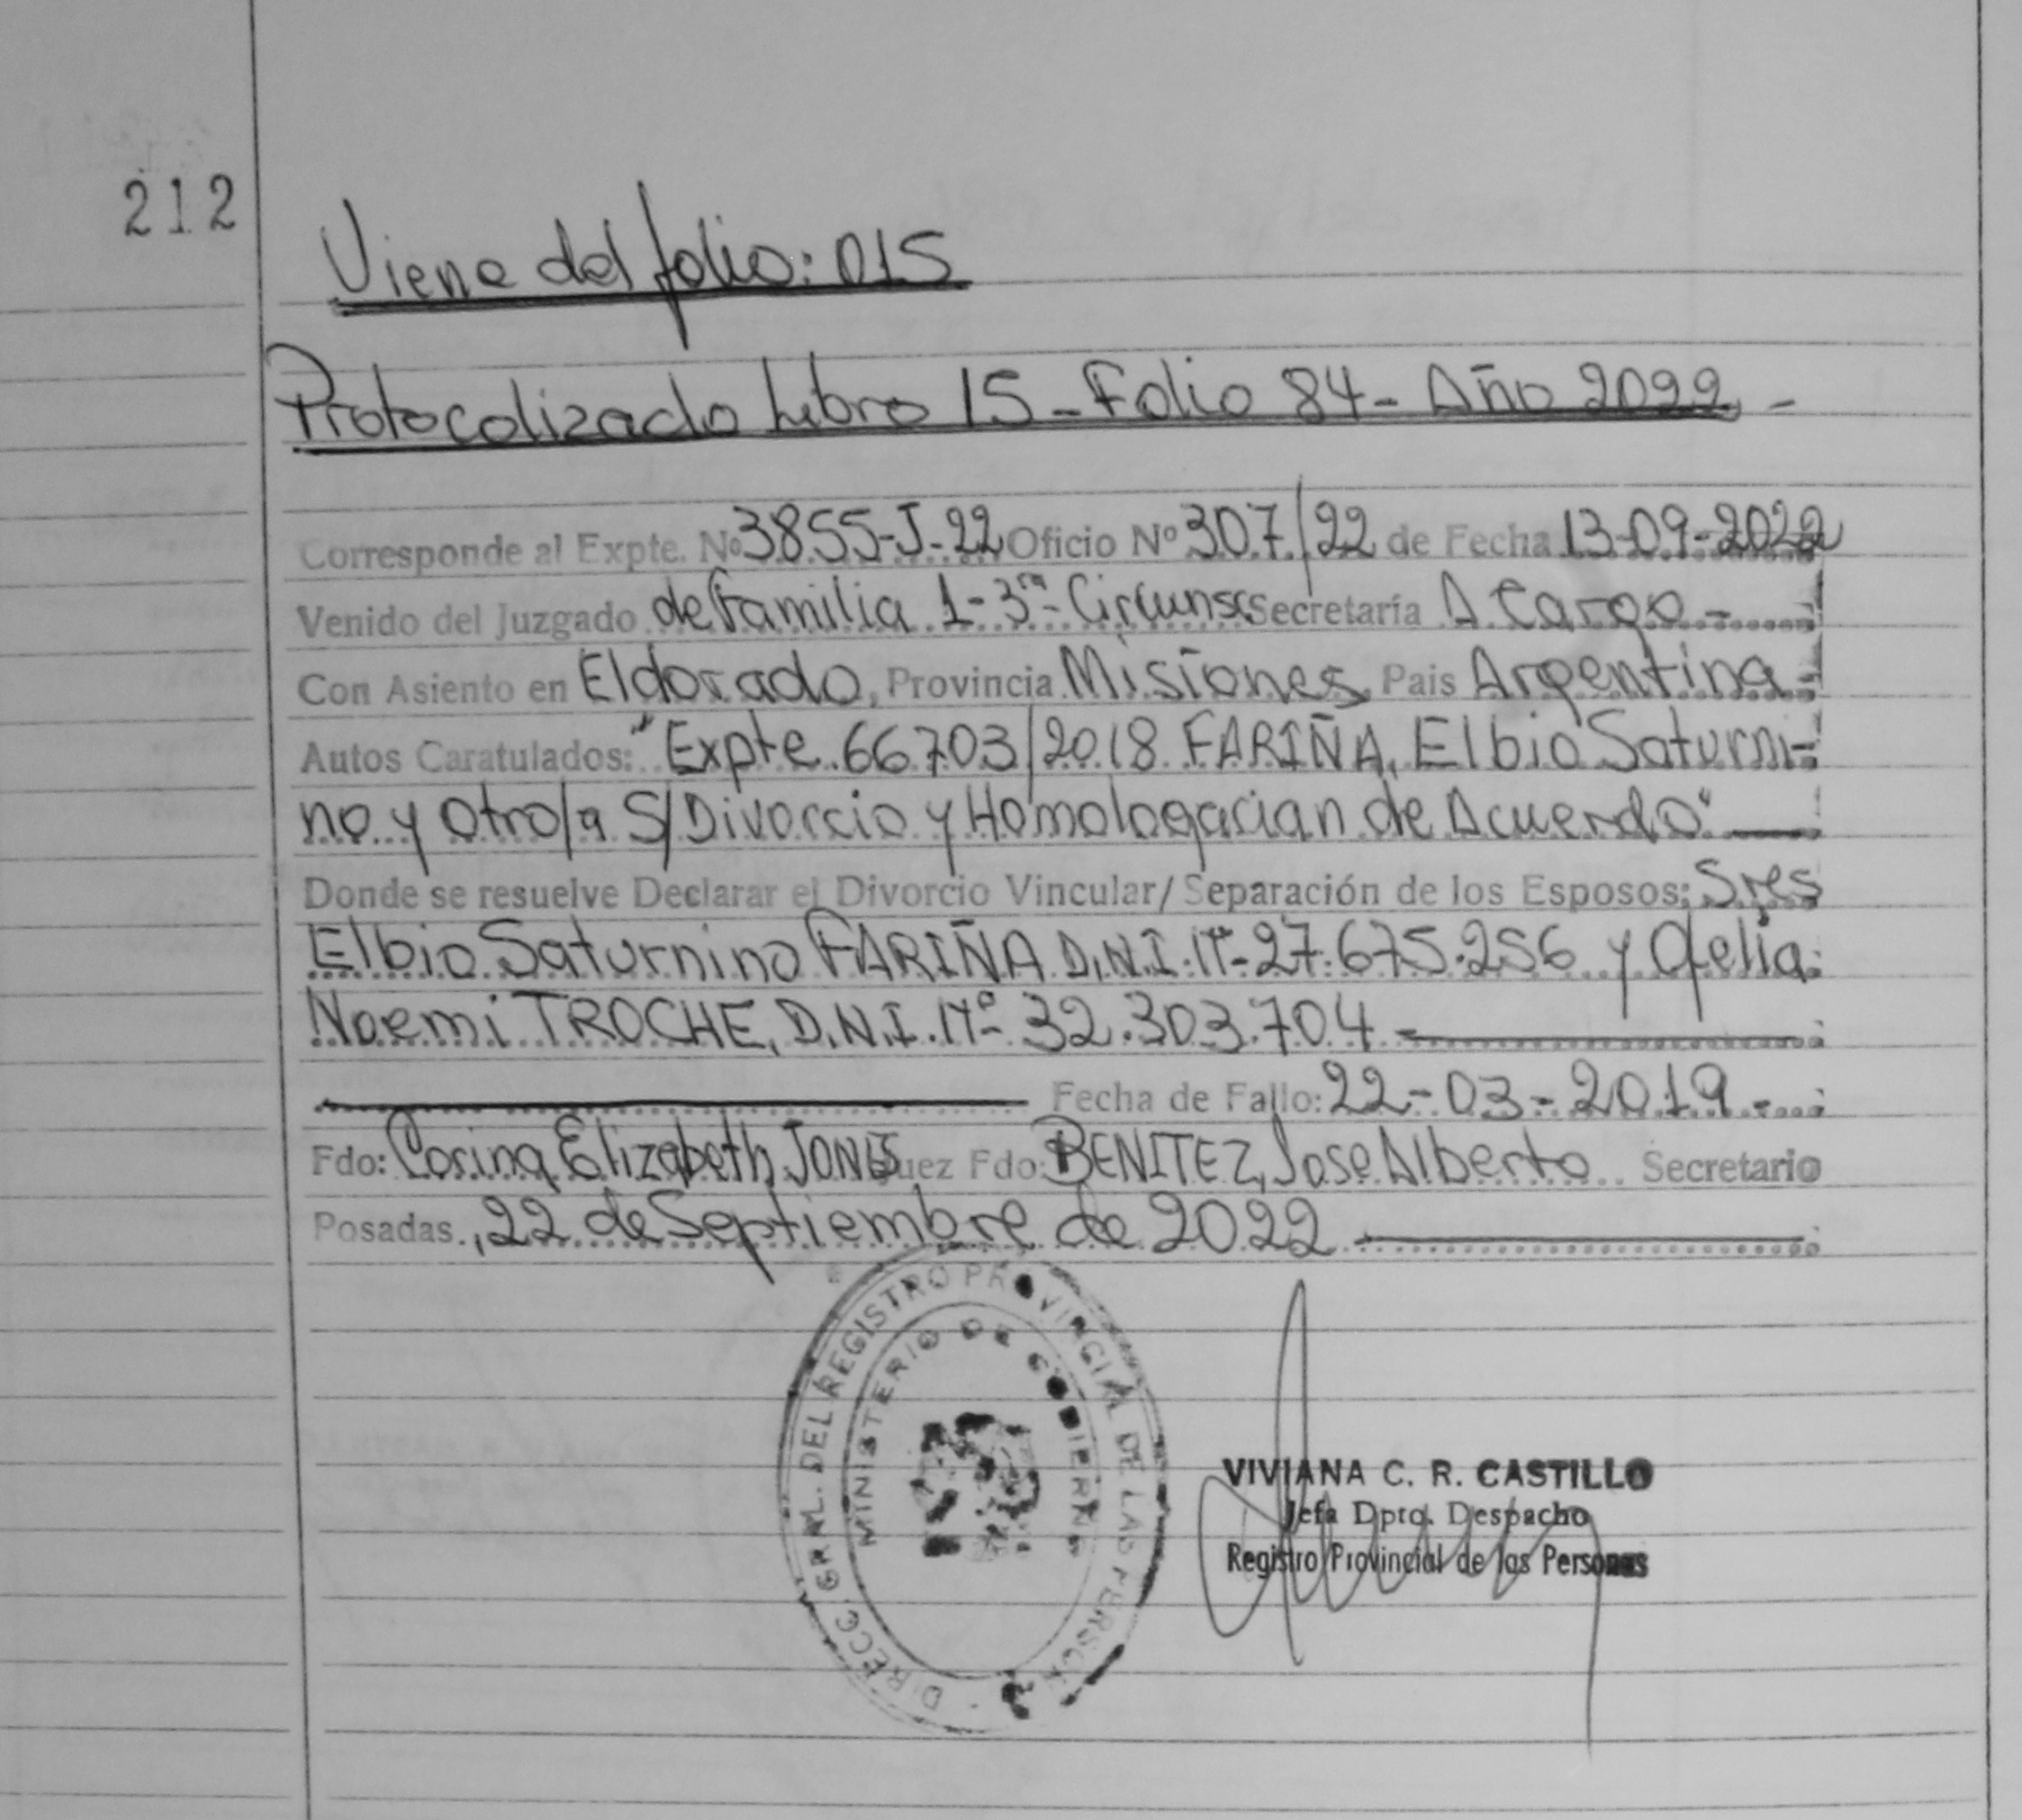 212
Viene del folio: 015
Protocolizado Libro 15 - Folio 84 - Año 2022 -
Corresponde al Expte. Nº 3855-J-22 Oficio Nº 307/22 de Fecha 13-09-2022
Venido del Juzgado de Familia 1 - 3ra - Circunsc Secretaría A Cargo -
Con Asiento en Eldorado, Provincia Misiones, Pais Argentina -
Autos Caratulados: "Expte. 66703/2018 FARIÑA, Elbio Saturni-
no y otro/a S/Divorcio y Homologacian de Acuerdo"
Donde se resuelve Declarar el Divorcio Vincular/ Separación de los Esposos: Sres
Elbio Saturnino FARIÑA D.N.I. Nº- 27.675.256 y Ofelia
Noemi TROCHE, D.N.I. Nº- 32.303.704 -
Fecha de Fallo: 22-03-2019 -
Fdo: Corina Elizabeth JONES Juez Fdo: BENITEZ, Jose Alberto Secretario
Posadas, 22 de Septiembre de 2022
DIRECC. GRAL. DEL REGISTRO PROVINCIAL DE LAS PERSON
MINISTERIO DE GOBIERNO
VIVIANA C. R. CASTILLO
Jefa Dpto. Despacho
Registro Provincial de las Personas